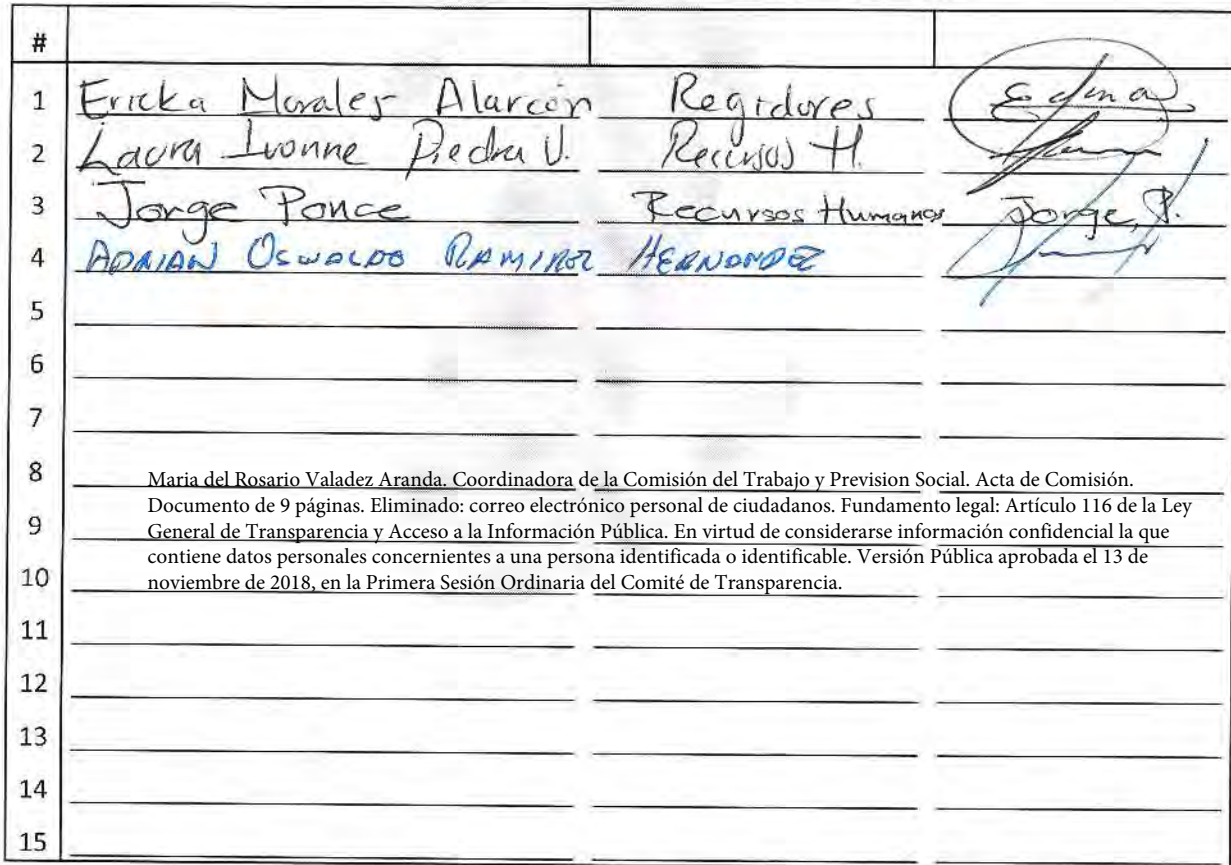 #
1 Ericka Morales Alarcón Regidores
2 Laura Ivonne Piedra V. Recursos H.
3 Jorge Ponce Recursos Humanos Jorge, P.
4 ADRIAN OSWALDO RAMIREZ HERNANDEZ
5
6
7
8
Maria del Rosario Valadez Aranda. Coordinadora de la Comisión del Trabajo y Prevision Social. Acta de Comisión.
Documento de 9 páginas. Eliminado: correo electrónico personal de ciudadanos. Fundamento legal: Artículo 116 de la Ley
9
General de Transparencia y Acceso a la Información Pública. En virtud de considerarse información confidencial la que
contiene datos personales concernientes a una persona identificada o identificable. Versión Pública aprobada el 13 de
10
noviembre de 2018, en la Primera Sesión Ordinaria del Comité de Transparencia.
11
12
13
14
15